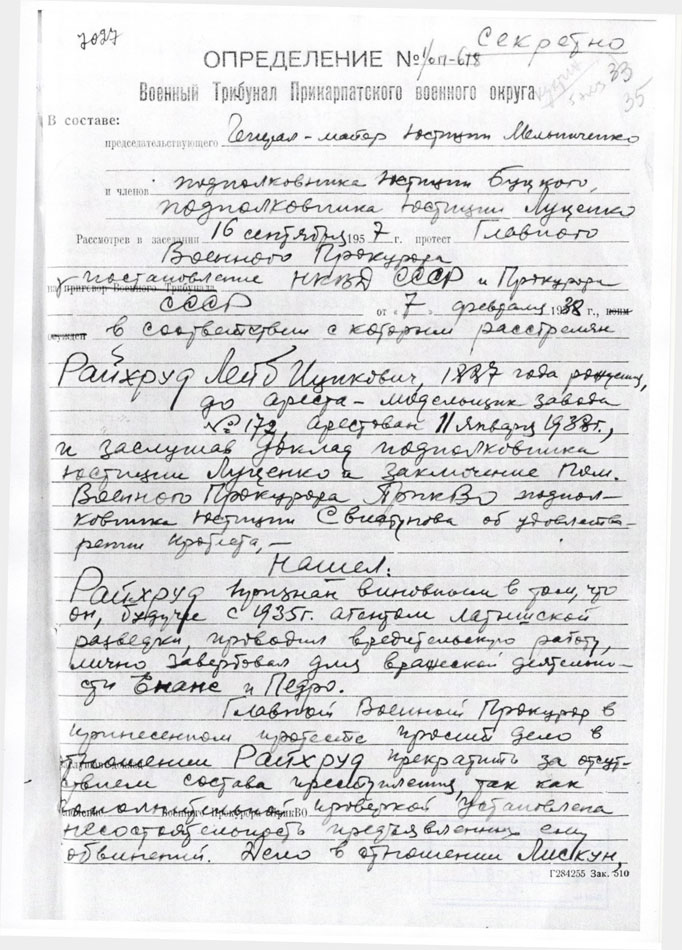 7027
Секретно
ОПРЕДЕЛЕНИЕ № 1/оп-678
33
35
Военный Трибунал Прикарпатского военного округа
В составе:
председательствующего Генерал-майор юстиции Мельниченко
и членов подполковника юстиции Буцкого,
подполковника юстиции Луценко
Рассмотрев в заседании 16 сентября 1957 г. протест Главного
Военного Прокурора
на приговор Военного Трибунала постановление НКВД СССР и Прокурора
СССР от «7» февраля 1938 г.,
осужден в соответствии с которым расстрелян
Райхруд Лейб Ицикович, 1887 года рождения,
до ареста - модельщик завода
№ 172, арестован 11 января 1938 г.,
и заслушав доклад подполковника
юстиции Луценко и заключение пом.
Военного Прокурора ПрикВО подпол-
ковника юстиции Свистунова об удовлетво-
рении протеста, -
Нашел:
Райхруд признан виновным в том, что
он, будучи с 1935 г. агентом латышской
разведки, проводил вредительскую работу,
лично завербовал для вражеской деятельно-
сти Енанс и Педро.
Главный Военный Прокурор в
принесенном протесте просит дело в
отношении Райхруд прекратить за отсут-
ствием состава преступления, так как
дополнительной проверкой установлена
Военного Прокурора ПрикВО
несостоятельность предъявленных ему
обвинений. Дело в отношении Лискун,
Г284255 Зак. 510